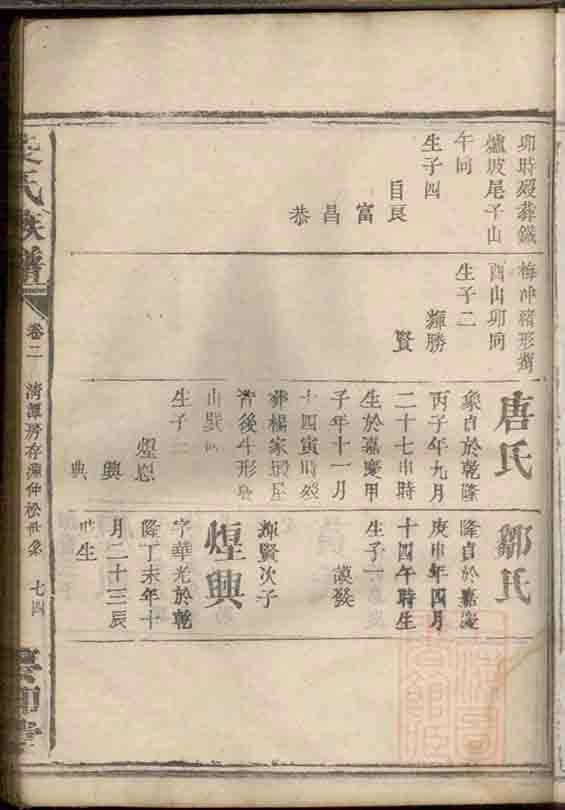 卯時歿葬鐵
爐坡尾子山
午向
生子四
目良
富
昌
恭
梅冲豬形嘴
酉山卯向
生子二
輝勝
賢
唐氏
象貞於乾隆
丙子年九月
二十七申時
生於嘉慶甲
子年十一月
十四寅時歿
葬楊家塅屋
背後牛形
山巽向
生子二
煌恩
興
典
鄒氏
隆貞於嘉慶
庚申年四月
十四午時生
生子一
謨發
輝賢次子
煌興
字華光於乾
隆丁未年十
月二十三辰
時生
氏族譜
卷二
清潭房存濂仲松世系
七四